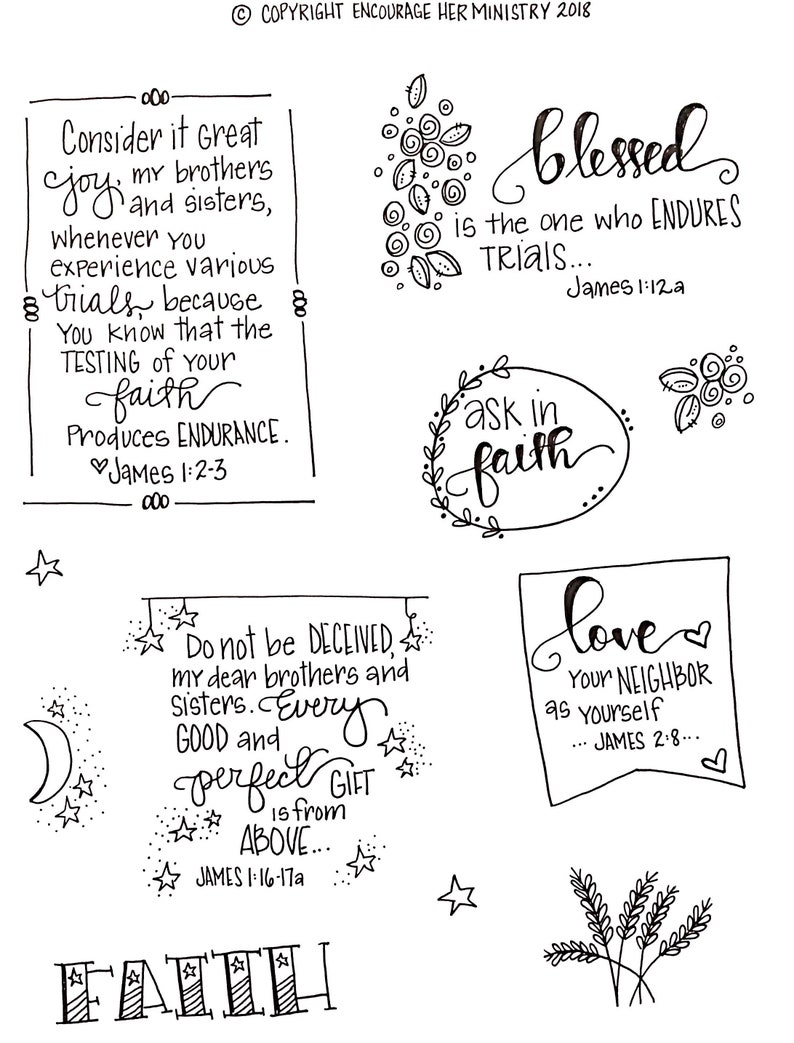 © COPYRIGHT ENCOURAGE HER MINISTRY 2018
Consider it Great
joy, my brothers
and sisters,
whenever you
experience various
trials, because
you know that the
TESTING of your
faith
Produces ENDURANCE.
James 1:2-3
blessed
is the one who ENDURES
TRIALS...
James 1:12a
ask in
faith
Do not be DECEIVED,
my dear brothers and
sisters. Every
GOOD and
perfect GIFT
is from
ABOVE...
JAMES 1:16-17a
love
your NEIGHBOR
as yourself
... JAMES 2:8...
FAITH